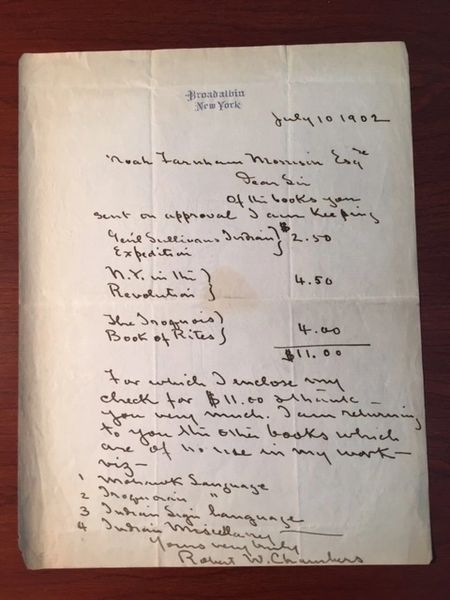 Broadalbin
New York
July 10 1902
Noah Farnham Morrison Esqre
Dear Sir
Of the books you
sent on approval I am keeping
Gen'l Sullivans Indian } $2.50
Expedition
N.Y. in the } 4.50
Revolution
The Iroquois } 4.00
Book of Rites
$11.00
For which I enclose my
check for $11.00 & thank
you very much. I am returning
to you the other books which
are of no use in my work –
viz –
1 Mohawk Language
2 Iroquoian "
3 Indian Sign Language
4 Indian Miscellany
Yours very truly
Robert W. Chambers